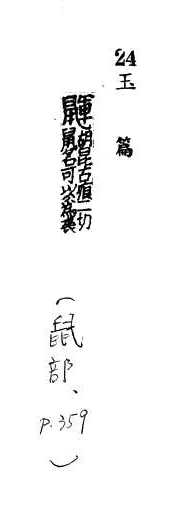 24 玉篇
鼲
胡昆古痕二切
鼠名可以為裘
(鼠部、P.359)